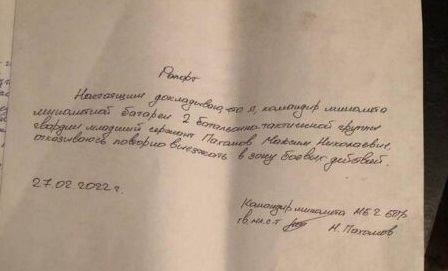 Рапорт
Настоящим докладываю, что я, командир миномета
минометной батареи 2 батальонно-тактической группы
гвардии младший сержант Пахомов Максим Николаевич,
отказываюсь повторно выезжать в зону боевых действий.
27.02.2022 г.
Командир миномета МБ 2 БТГр
гв. мл. с-т М. Пахомов